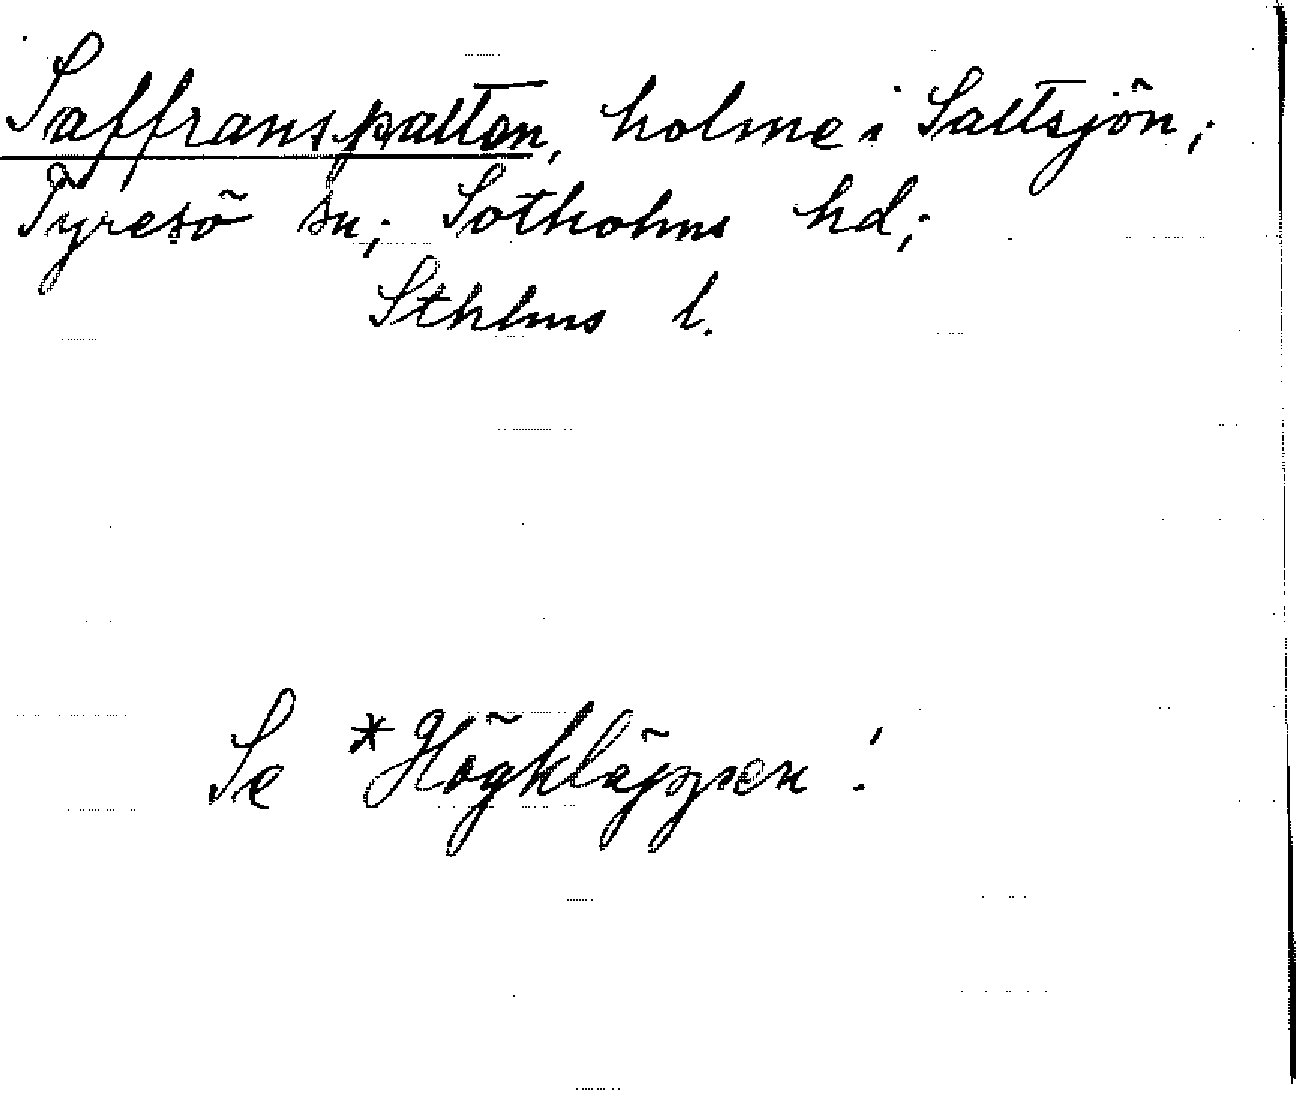 Saffranspalten, holme i Saltsjön;
Tyresö sn; Sotholms hd;
Sthlms l.
Se *Högkläppen!